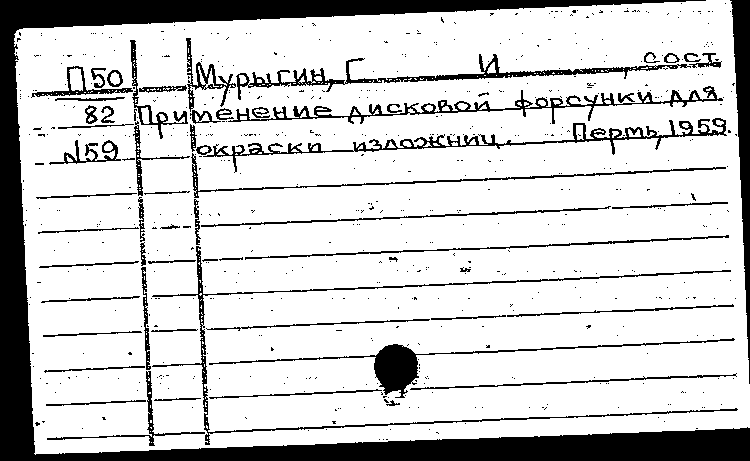 П50 Мурыгин, Г И , сост
82 Применение дисковой форсунки для
N59 окраски изложниц. Пермь, 1959.